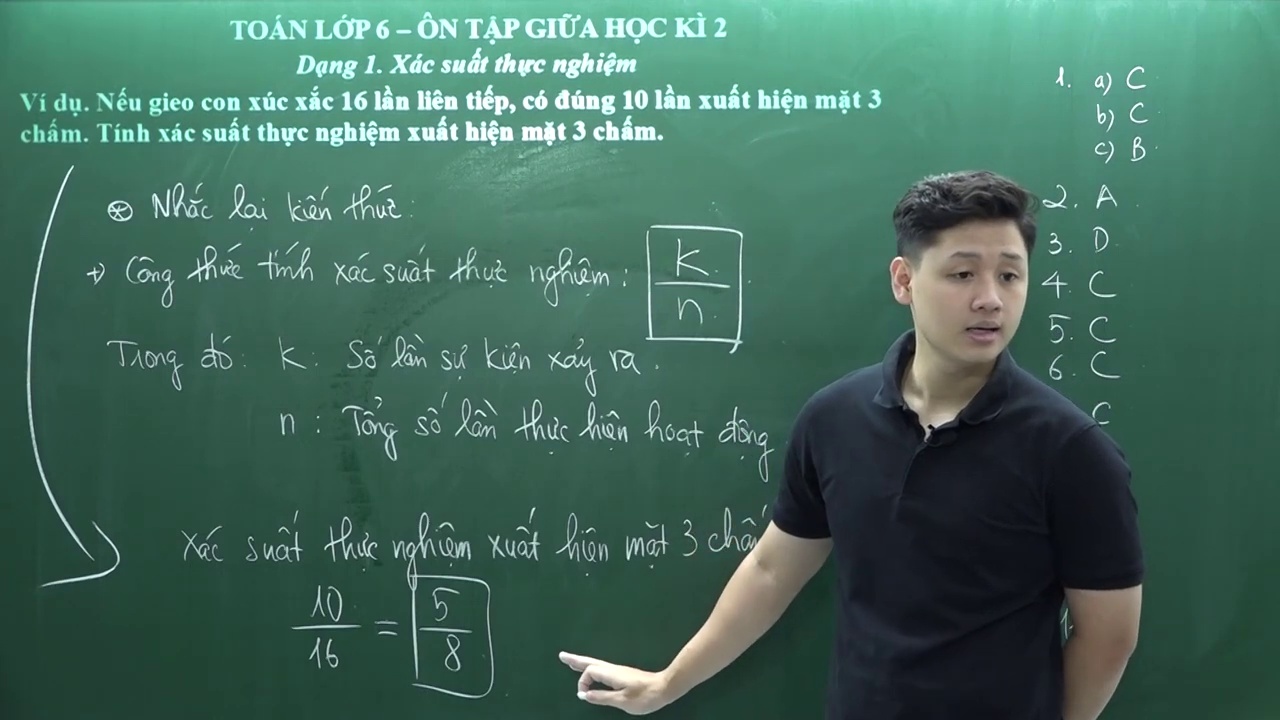 TOÁN LỚP 6 – ÔN TẬP GIỮA HỌC KÌ 2
Dạng 1. Xác suất thực nghiệm
Ví dụ. Nếu gieo con xúc xắc 16 lần liên tiếp, có đúng 10 lần xuất hiện mặt 3
chấm. Tính xác suất thực nghiệm xuất hiện mặt 3 chấm.
* Nhắc lại kiến thức:
+) Công thức tính xác suất thực nghiệm: k/n
Trong đó: k: Số lần sự kiện xảy ra.
n: Tổng số lần thực hiện hoạt động
Xác suất thực nghiệm xuất hiện mặt 3
10/16 = 5/8
1. a) C
b) C
c) B
2. A
3. D
4. C
5. C
6. C
C
1.